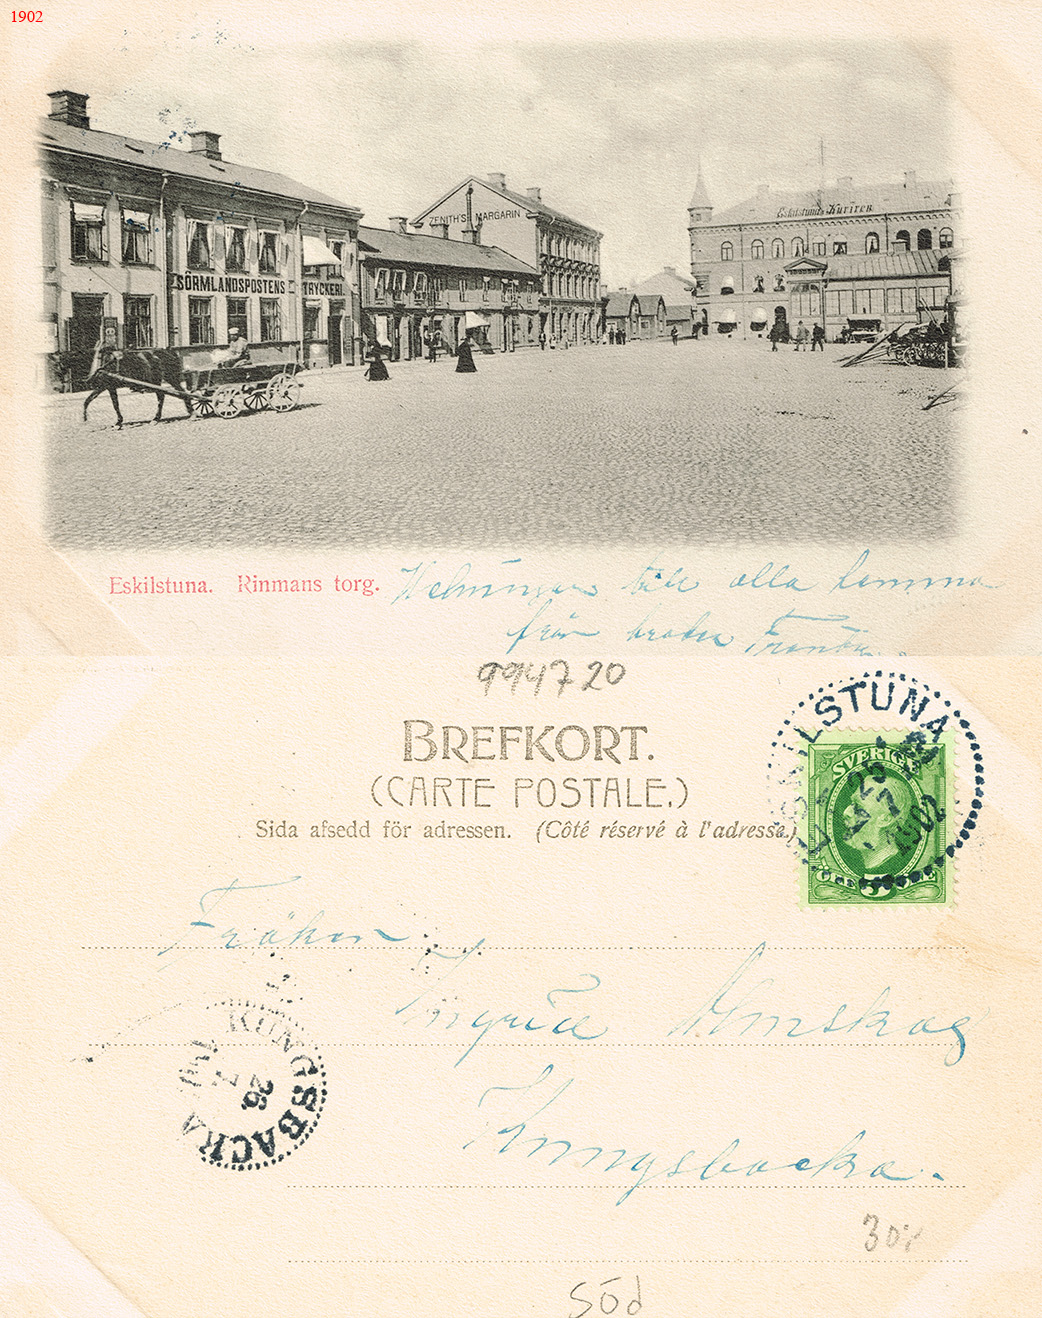 1902
ZENITH'S MARGARIN
Eskilstuna-Kuriren
SÖRMLANDSPOSTENS TRYCKERI.
Eskilstuna. Rinmans torg.
till alla hemma
från broder
994720
BREFKORT.
(CARTE POSTALE.)
Sida afsedd för adressen. (Côté réservé à l'adresse.)
ESKILSTUNA
25 7 1902
SVERIGE
5
Fröken
Ingrid Almskog
Kungsbacka.
KUNGSBACKA
26 7
30
Söd